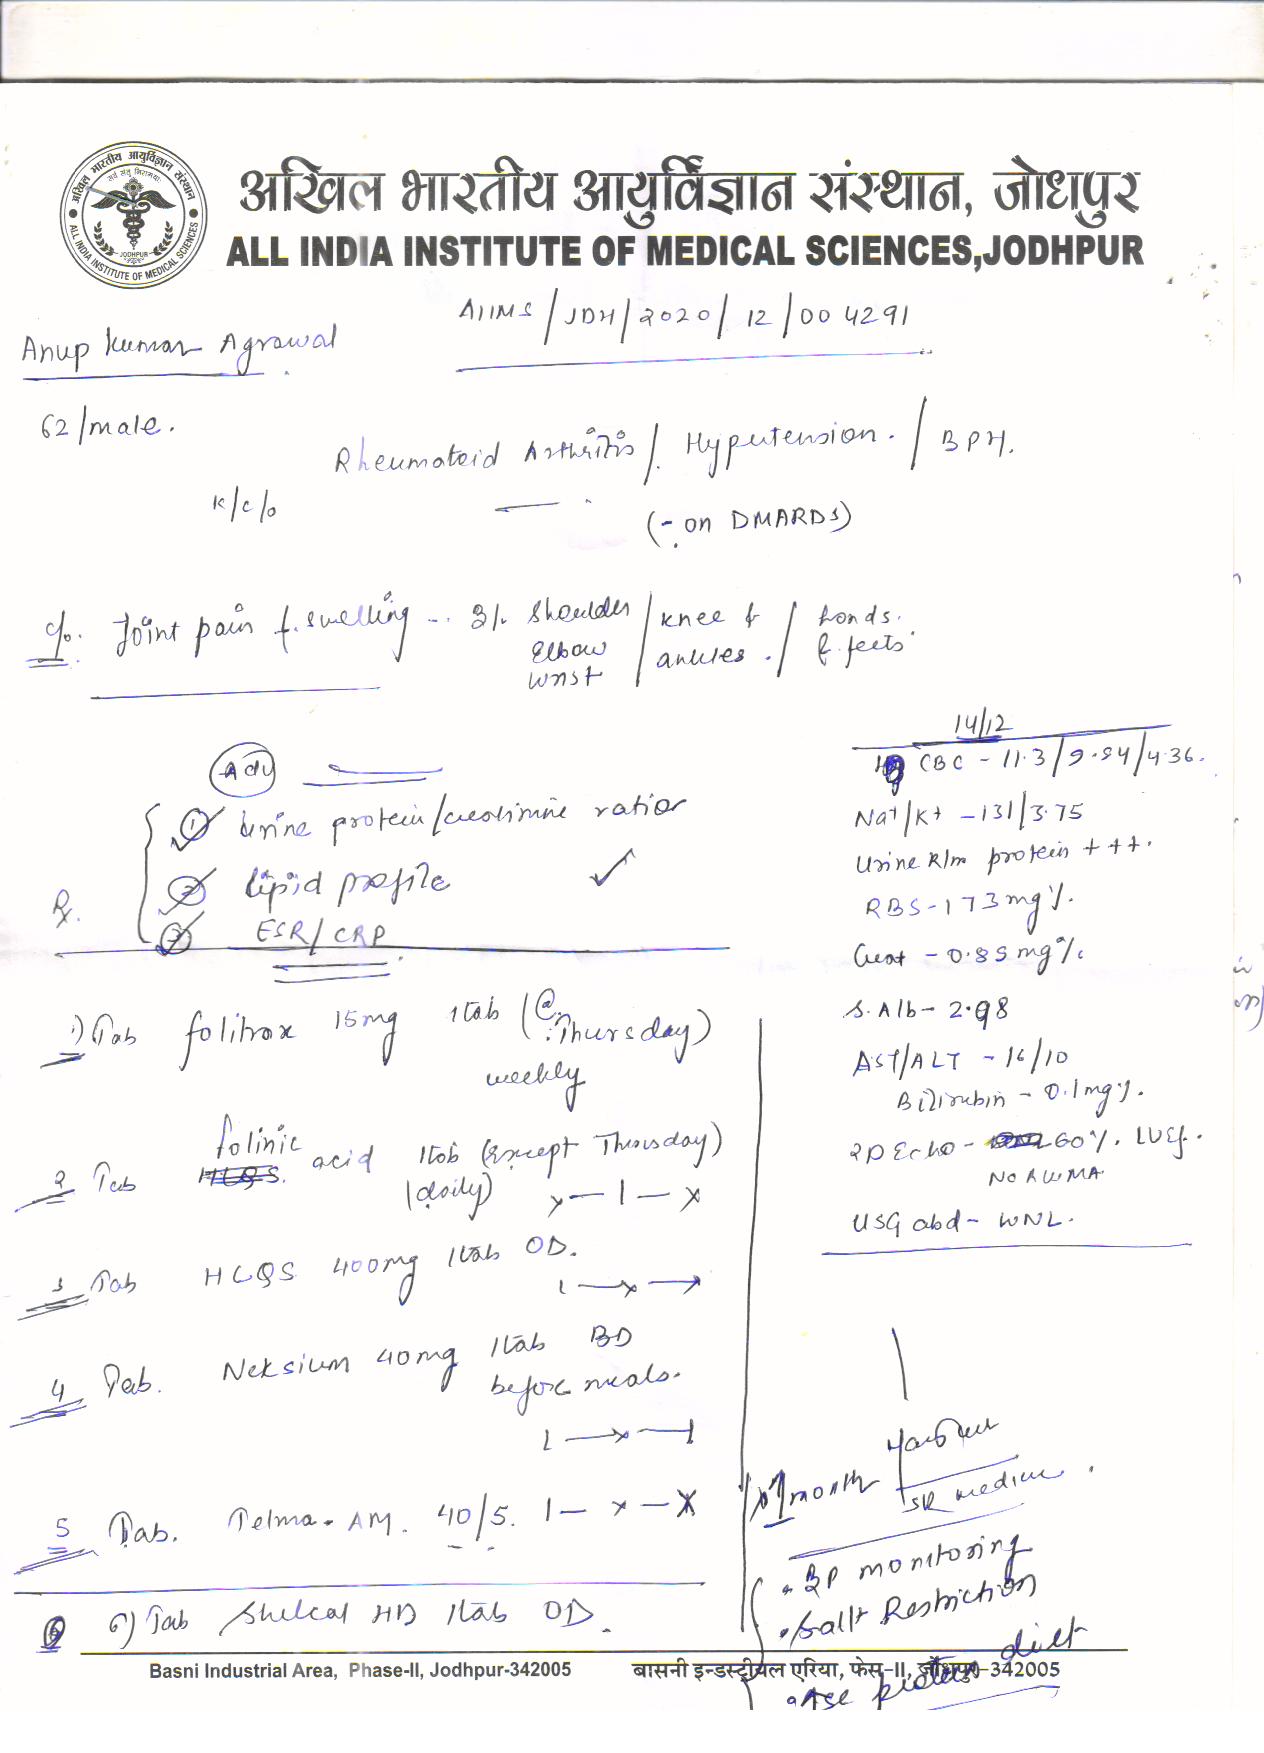 अखिल भारतीय आयुर्विज्ञान संस्थान, जोधपुर
ALL INDIA INSTITUTE OF MEDICAL SCIENCES,JODHPUR
AIIMS/JDH/2020/12/004291
Anup Kumar Agrawal
62/male.
Rheumatoid Arthritis/ Hypertension. / BPH.
K/c/o
(- on DMARDS)
c/o. Joint pain & swelling - B/L Shoulder / knee & / hands.
Elbow / ankles. / & feets
wrist
Adv
1 Urine protein/creatinine ratio
2 lipid profile ✓
Rx.
3 ESR/CRP
1) Tab folitrax 15mg 1tab (@ Thursday)
weekly
2 Tab folinic acid 1tab (except Thursday)
(daily) x—1—x
3 Tab HCQS 400mg 1tab OD.
1—x—x
4 Tab. Neksium 40mg 1tab BD
before meals.
1—x—1
5 Tab. Telma-AM. 40/5. 1—x—x
6) Tab Shelcal HD 1tab OD.
14/12
CBC - 11.3/9.84/4.36.
Na+/K+ - 131/3.75
Urine R/m protein +++.
RBS - 173mg%.
Creat - 0.85mg%
S.Alb - 2.98
AST/ALT - 16/10
Bilirubin - 0.1mg%.
2D Echo - 60%. LVEf.
No RWMA
USG abd - WNL.
1 month
SR medicine
. BP monitoring
. Salt Restriction
protein diet
Basni Industrial Area, Phase-II, Jodhpur-342005 बासनी इन्डस्ट्रीयल एरिया, फेस-II, जोधपुर-342005